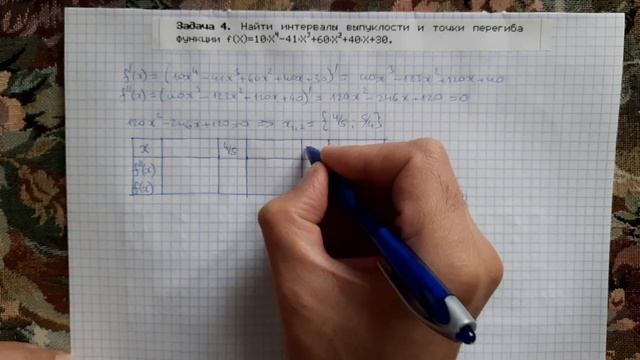 Задача 4. Найти интервалы выпуклости и точки перегиба
функции f(X)=10·X⁴-41·X³+60·X²+40·X+30.
f'(x) = (10x⁴-41x³+60x²+40x+30)' = 40x³-123x²+120x+40
f''(x) = (40x³-123x²+120x+40)' = 120x²-246x+120 = 0
120x²-246x+120=0 => x₁,₂ = {4/5; 5/4}
x 4/5
f''(x)
f(x)